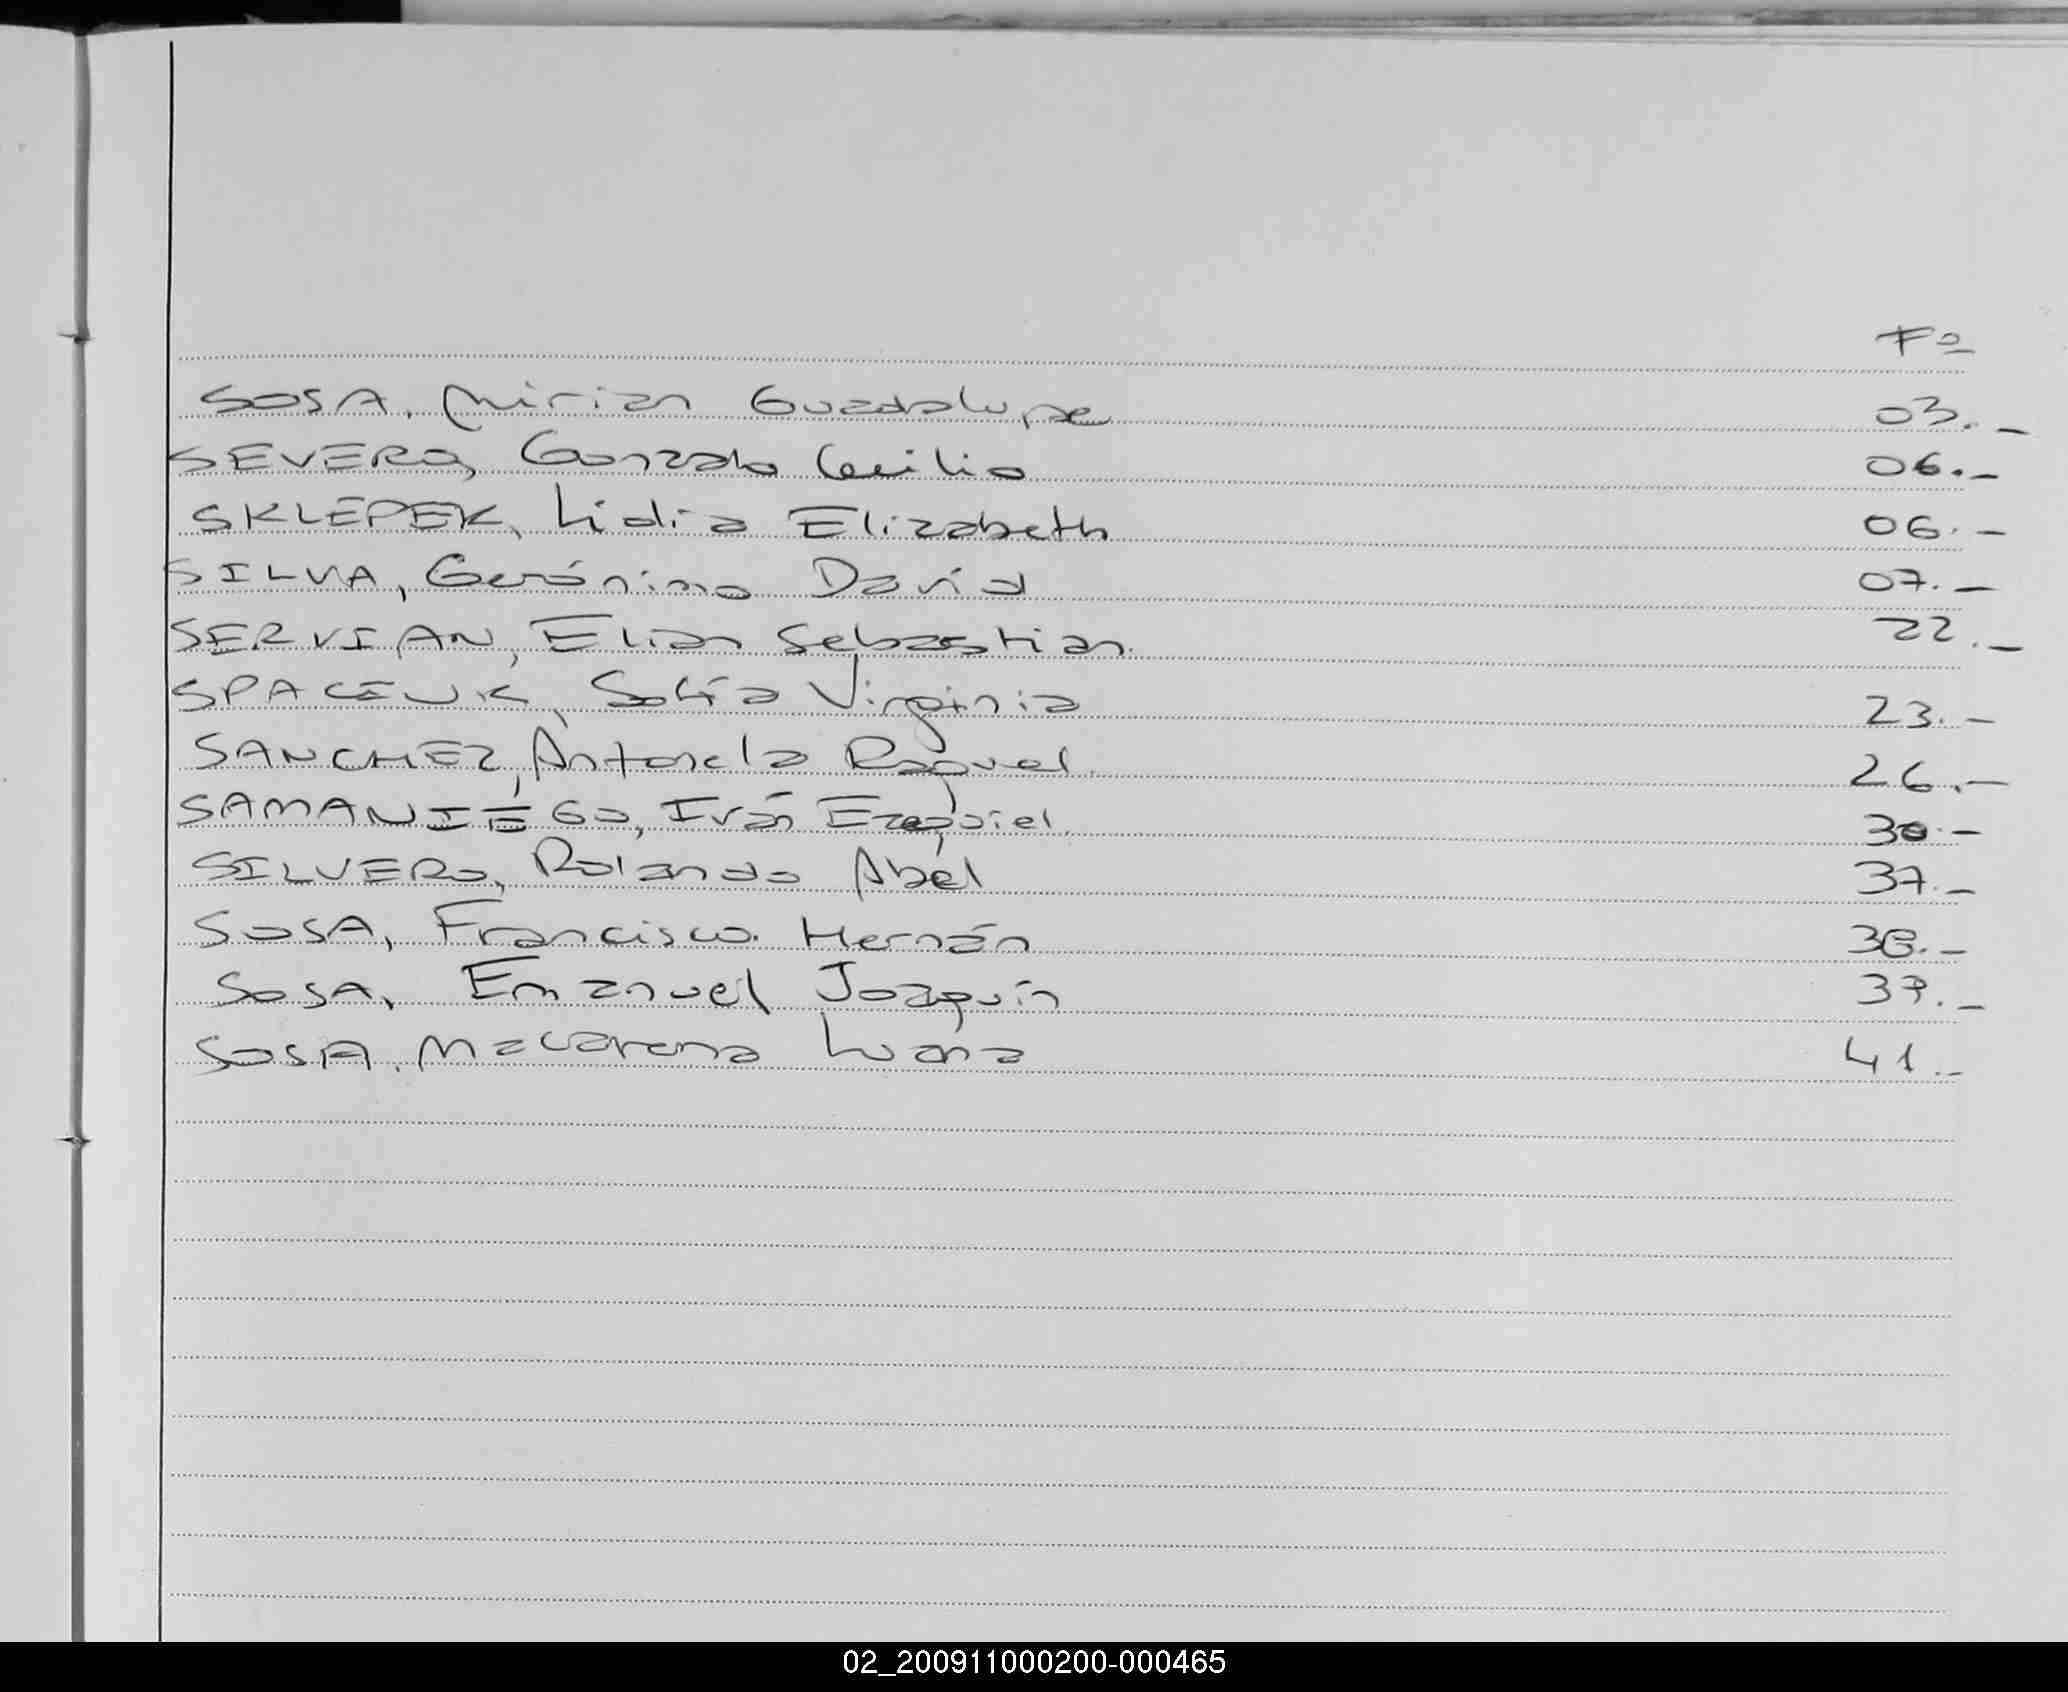 Fº
SOSA, Mirian Guadalupe 03.-
SEVERO, Gonzalo Cecilio 06.-
SKLEPEK, Lidia Elizabeth 06.-
SILVA, Gerónimo David 07.-
SERVIAN, Elian Sebastian. 22.-
SPACEUK, Sofía Virginia 23.-
SANCHEZ, Antonela Raquel. 26.-
SAMANIEGO, Iván Ezequiel. 30.-
SILVERO, Rolando Abél 37.-
SOSA, Francisco Hernán 38.-
SOSA, Emanuel Joaquín 39.-
SOSA, Macarena Luana 41.-
02_200911000200-000465